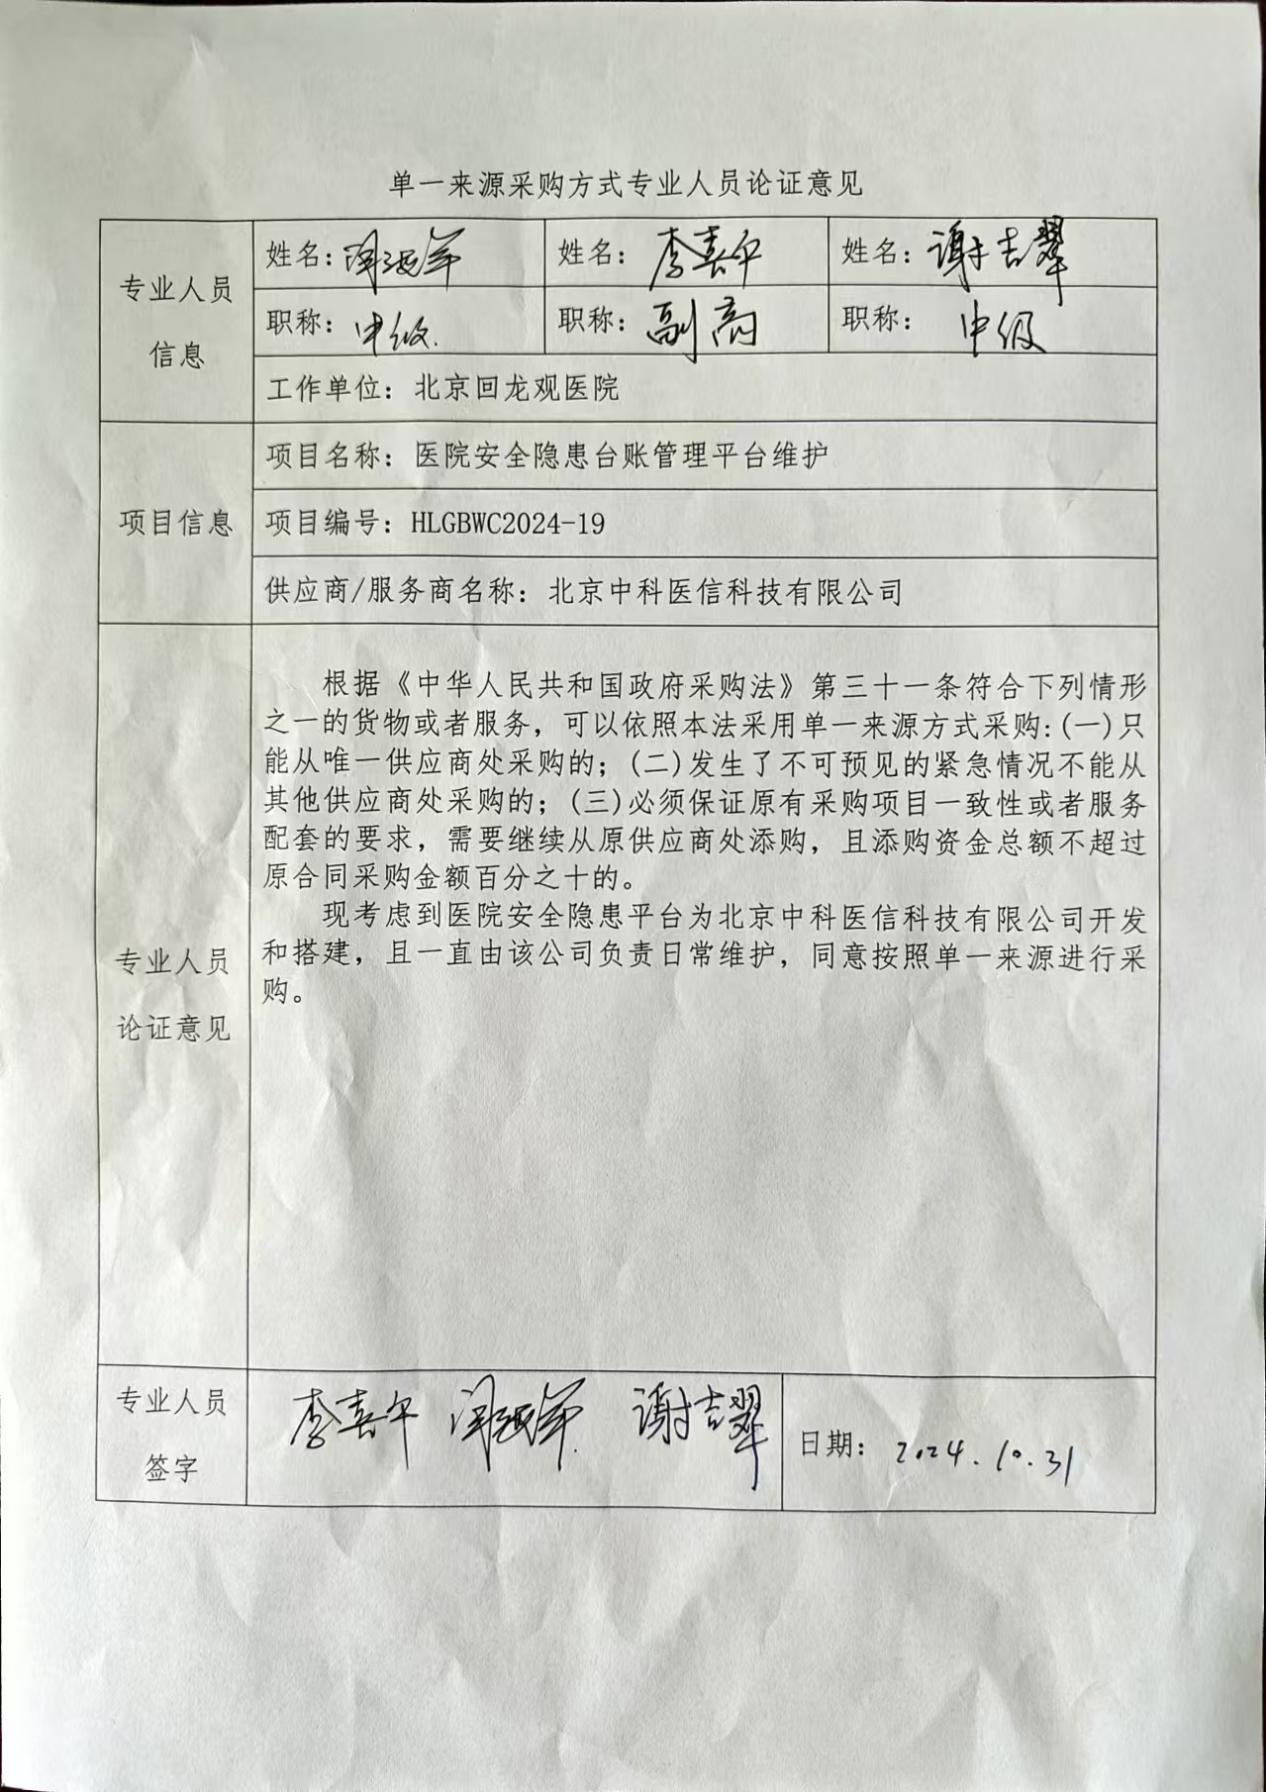 单一来源采购方式专业人员论证意见
专业人员信息
姓名：
姓名：李喜午
姓名：谢吉翠
职称：中级
职称：副高
职称：中级
工作单位：北京回龙观医院
项目信息
项目名称：医院安全隐患台账管理平台维护
项目编号：HLGBWC2024-19
供应商/服务商名称：北京中科医信科技有限公司
专业人员
论证意见
根据《中华人民共和国政府采购法》第三十一条符合下列情形
之一的货物或者服务，可以依照本法采用单一来源方式采购:(一)只
能从唯一供应商处采购的；(二)发生了不可预见的紧急情况不能从
其他供应商处采购的；(三)必须保证原有采购项目一致性或者服务
配套的要求，需要继续从原供应商处添购，且添购资金总额不超过
原合同采购金额百分之十的。
现考虑到医院安全隐患平台为北京中科医信科技有限公司开发
和搭建，且一直由该公司负责日常维护，同意按照单一来源进行采
购。
专业人员
签字
李喜午 谢吉翠
日期：2024.10.31